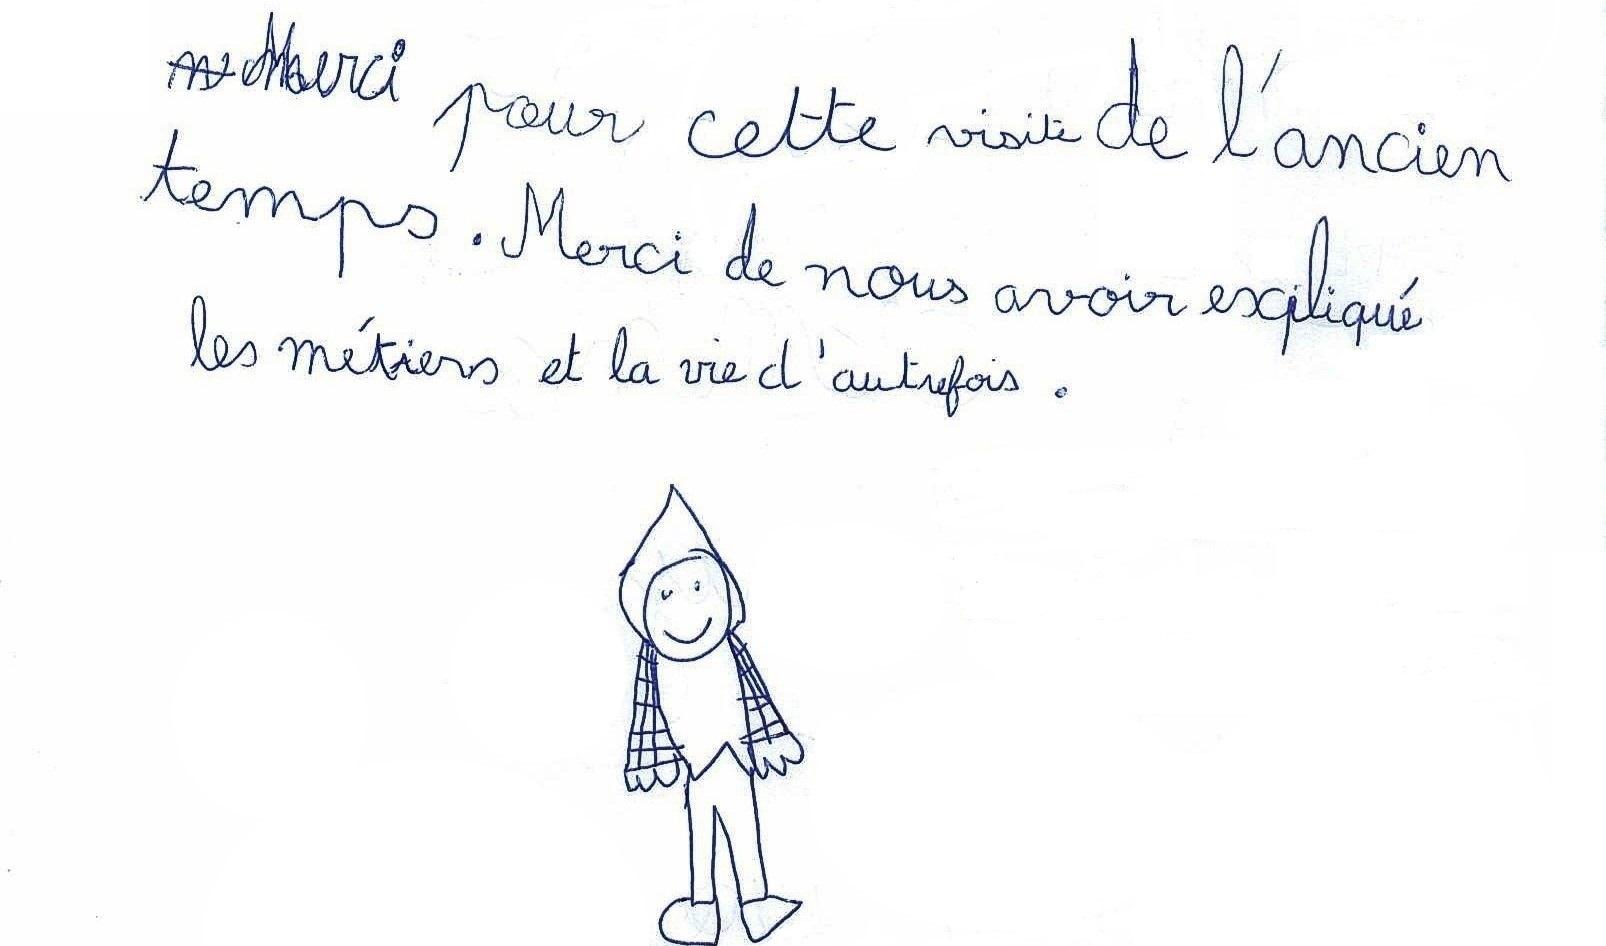 Merci pour cette visite de l'ancien
temps. Merci de nous avoir expliqué
les métiers et la vie d'autrefois.